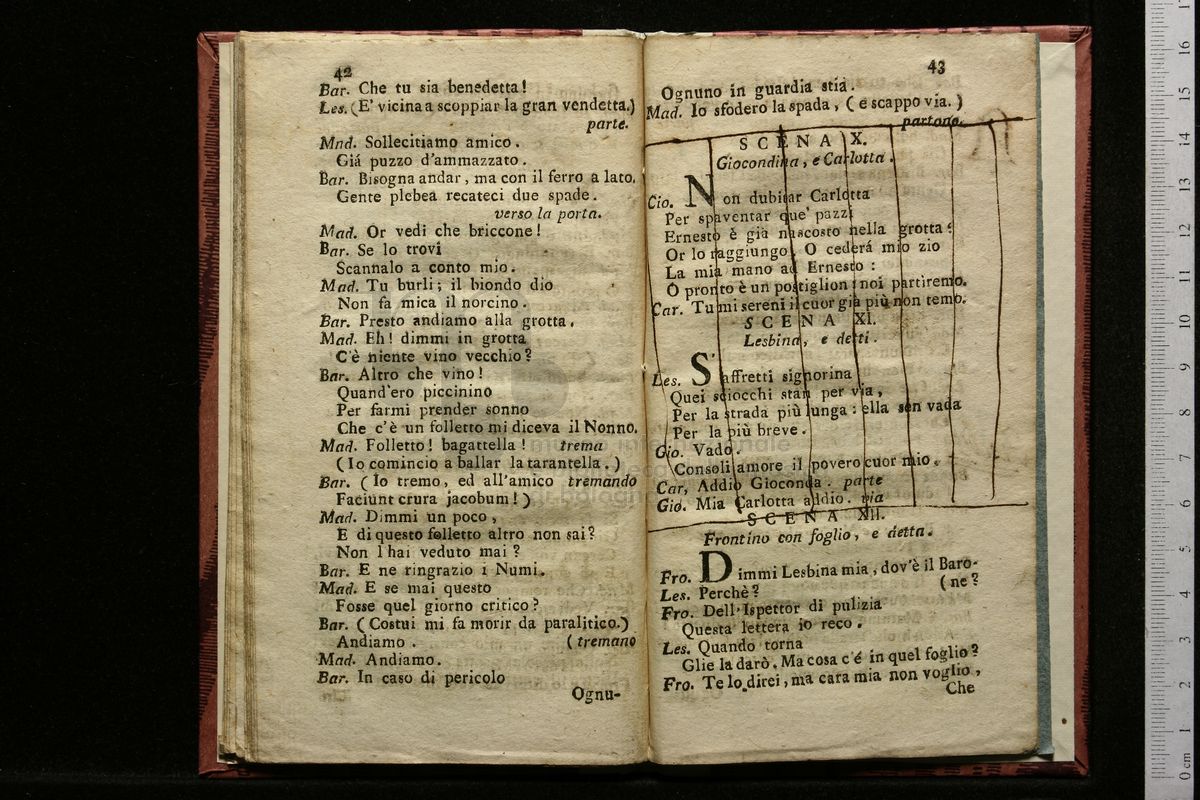 42
Bar. Che tu sia benedetta!
Les. (E' vicina a scoppiar la gran vendetta.)
parte.
Mad. Sollecitiamo amico.
Giá puzzo d'ammazzato.
Bar. Bisogna andar, ma con il ferro a lato.
Gente plebea recateci due spade.
verso la porta.
Mad. Or vedi che briccone!
Bar. Se lo trovi
Scannalo a conto mio.
Mad. Tu burli; il biondo dio
Non fa mica il norcino.
Bar. Presto andiamo alla grotta.
Mad. Eh! dimmi in grotta
C'è niente vino vecchio?
Bar. Altro che vino!
Quand'ero piccinino
Per farmi prender sonno
Che c'è un folletto mi diceva il Nonno.
Mad. Folletto! bagattella! trema
(Io comincio a ballar la tarantella.)
Bar. (Io tremo, ed all'amico tremando
Faciunt crura jacobum!)
Mad. Dimmi un poco,
E di questo folletto altro non sai?
Non l hai veduto mai?
Bar. E ne ringrazio i Numi.
Mad. E se mai questo
Fosse quel giorno critico?
Bar. (Costui mi fa morir da paralitico.)
Andiamo. (tremano
Mad. Andiamo.
Bar. In caso di pericolo
Ognu-
43
Ognuno in guardia stia.
Mad. Io sfodero la spada, (e scappo via.)
partono.
SCENA X.
Giocondina, e Carlotta.
Gio. Non dubitar Carlotta
Per spaventar que' pazzi
Ernesto è già nascosto nella grotta:
Or lo raggiungo. O cederá mio zio
La mia mano ad Ernesto:
O pronto è un postiglion: noi partiremo.
Car. Tu mi sereni il cuor già più non temo.
SCENA XI.
Lesbina, e detti.
Les. S'affretti signorina
Quei sciocchi stan per via,
Per la strada più lunga: ella sen vada
Per la più breve.
Gio. Vado.
Consoli amore il povero cuor mio.
Car, Addio Gioconda. parte
Gio. Mia Carlotta addio. via
SCENA XII.
Frontino con foglio, e detta.
Fro. Dimmi Lesbina mia, dov'è il Baro-
(ne?
Les. Perchè?
Fro. Dell'Ispettor di pulizia
Questa lettera io reco.
Les. Quando torna
Glie la darò. Ma cosa c'é in quel foglio?
Fro. Te lo direi, ma cara mia non voglio,
Che